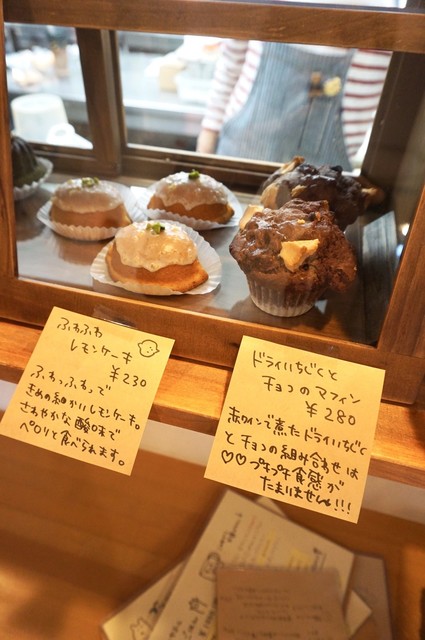 ふわふわ
レモンケーキ
¥230
ふわっふわっで
きめの細かいレモンケーキ。
さわやかな酸味で
ペロリと食べられます。
ドライいちじくと
チョコのマフィン
¥280
赤ワインで煮たドライいちじく
とチョコの組み合わせは
♡♡プチプチ食感が
たまりません!!!